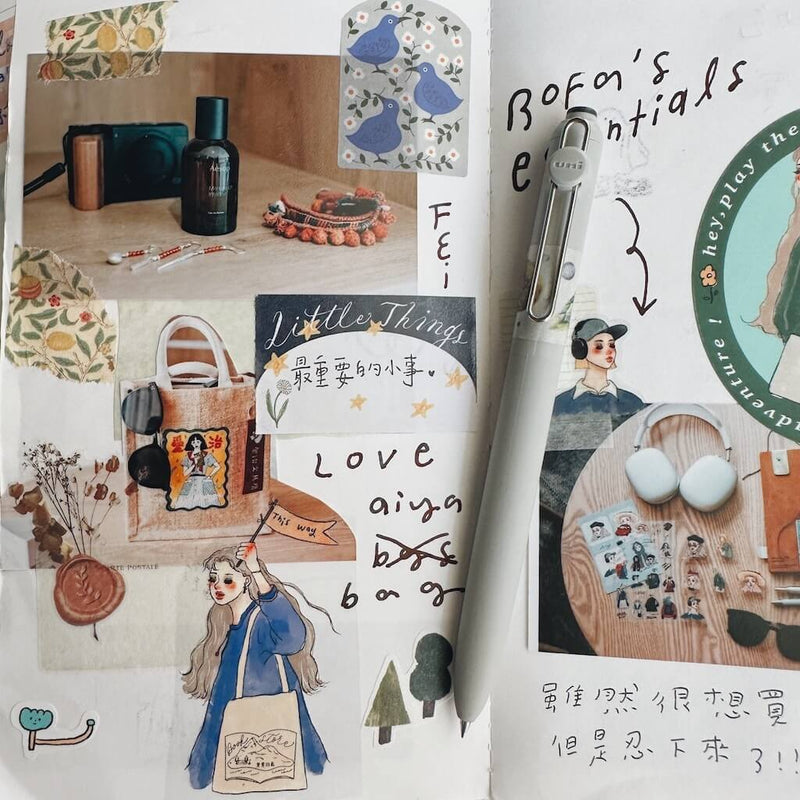 Aesop
Fεi
Little Things
最重要的小事。
愛治
LOVE
aiya
bag
This way
CARTE POSTALE
Book Store
BoFa's
essentials
uni
hey, play the
adventure!
雖然很想買
但是忍下來了!!